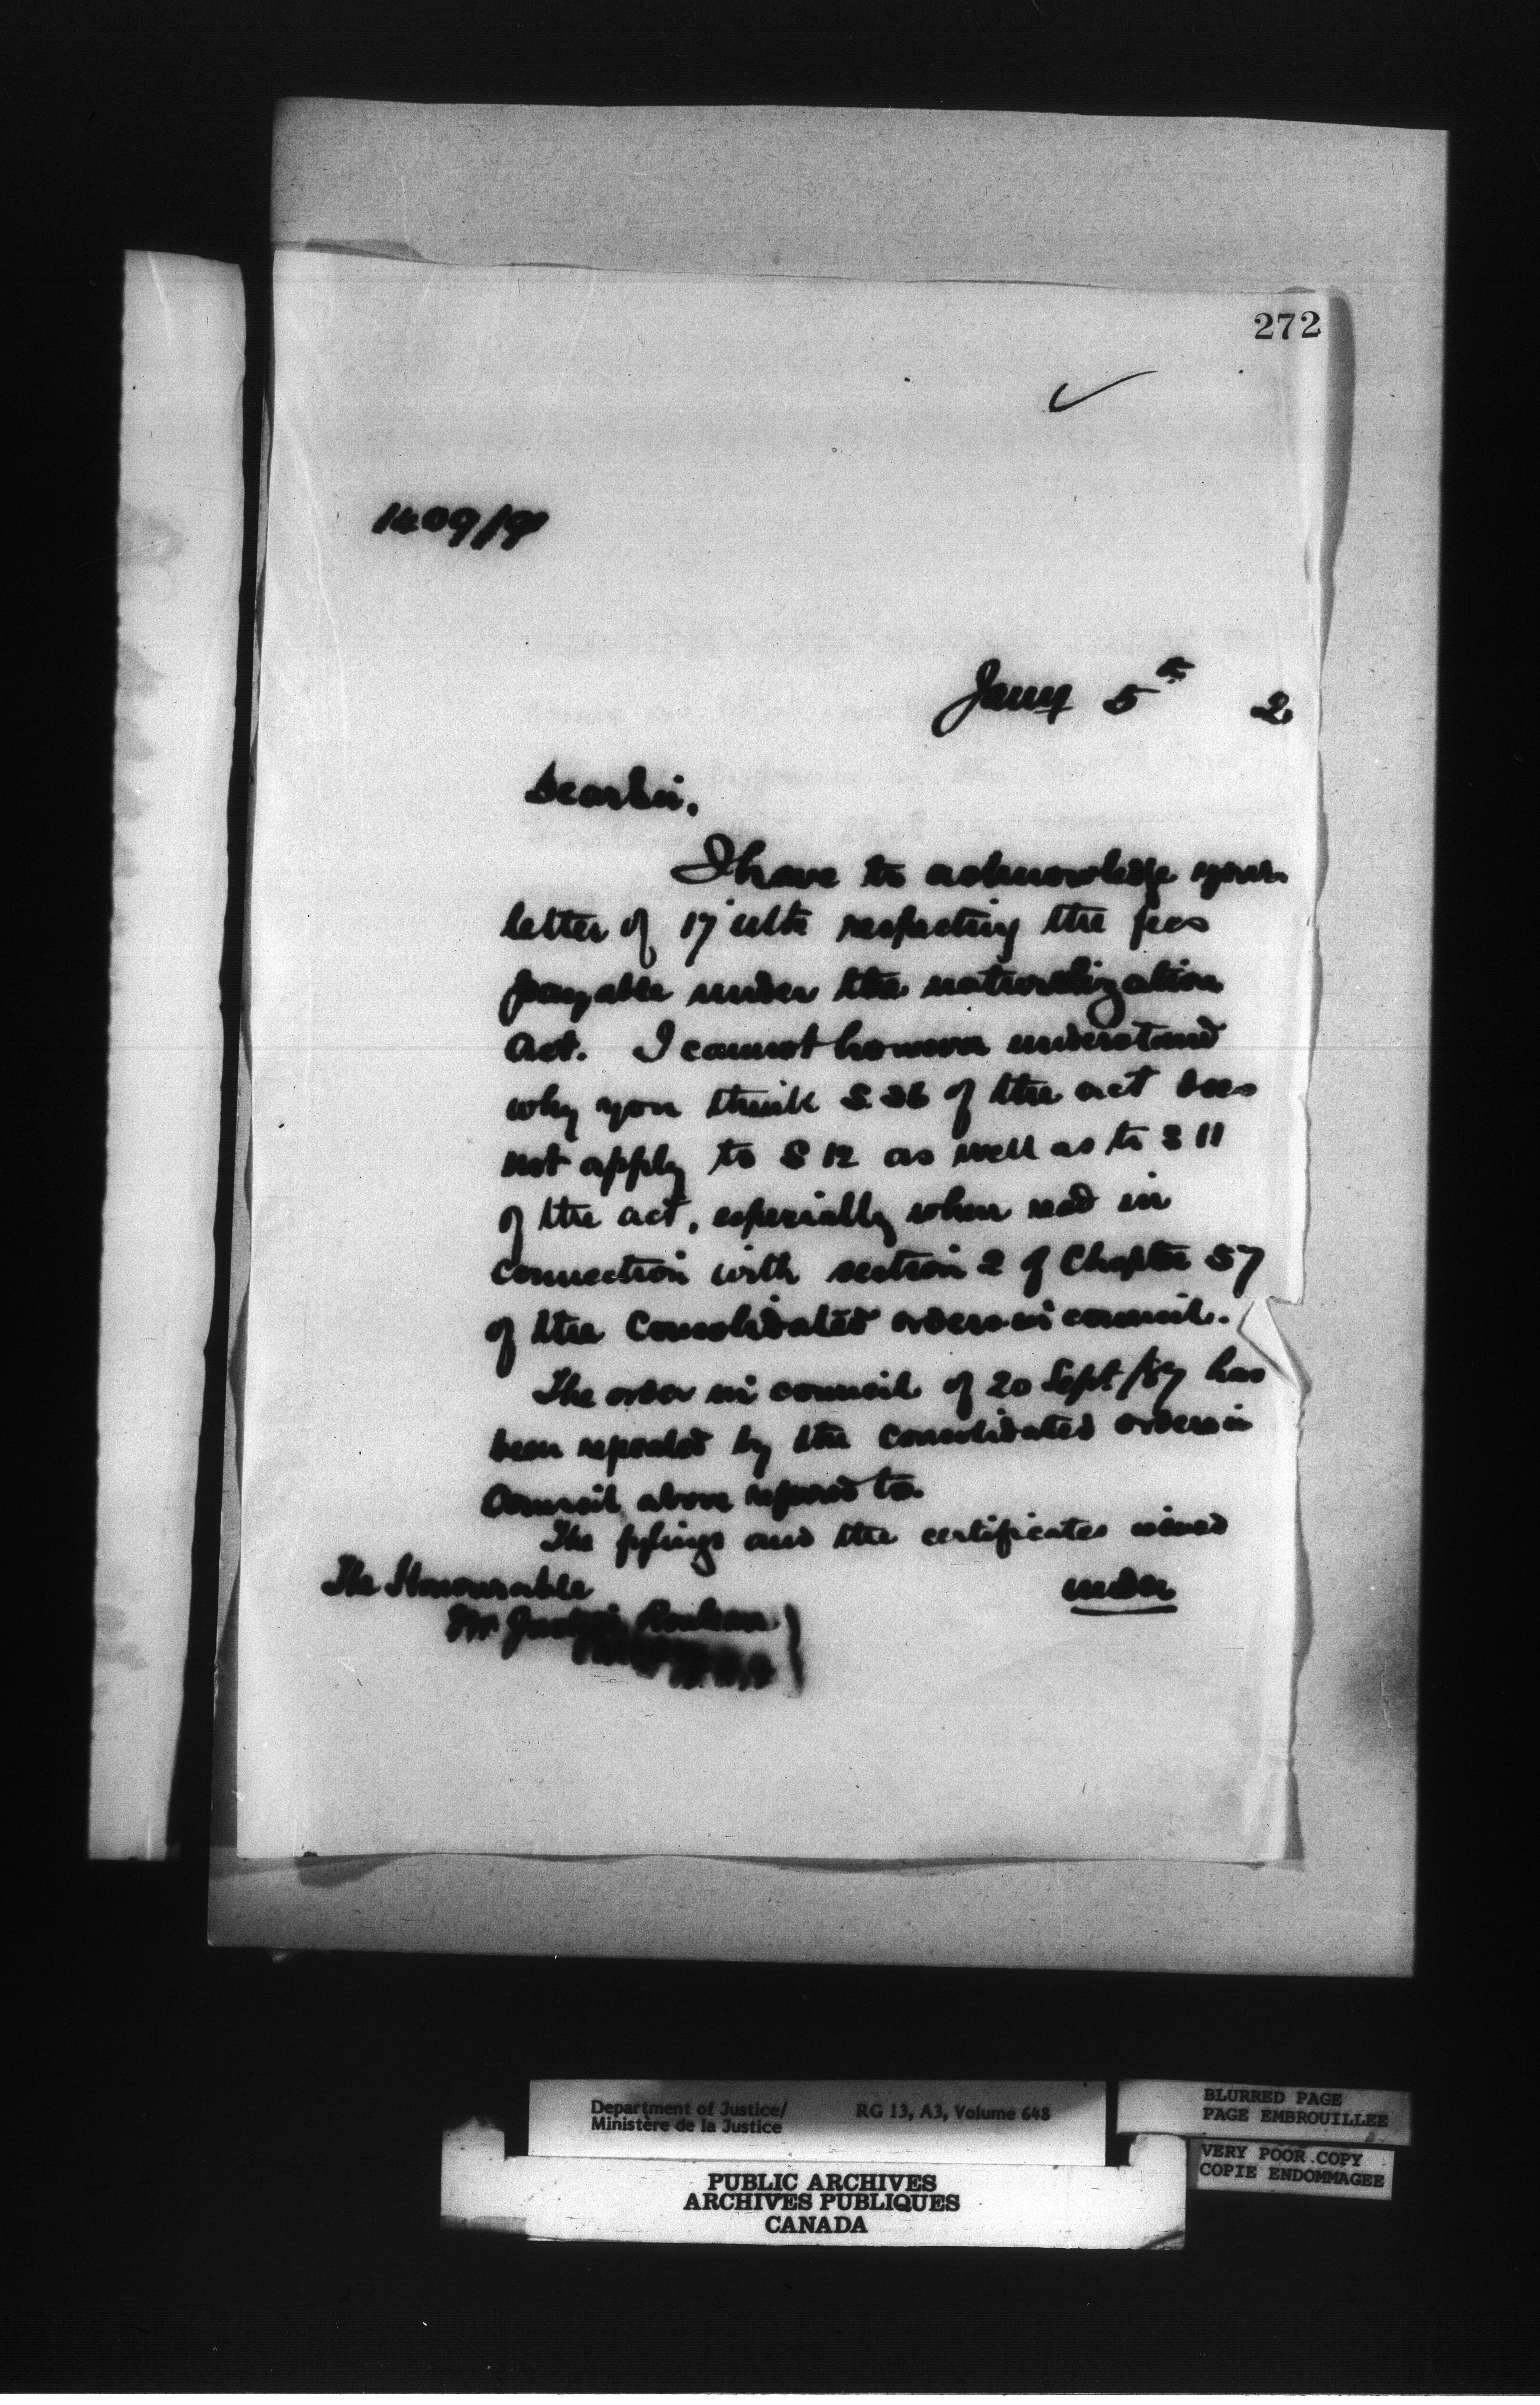 272
1409/91
Jany 5th 2
Dear Sir,
I have to acknowledge your
letter of 17" ulto respecting the fees
payable under the naturalization
act. I cannot however understand
why you think S. 36 of the act does
not apply to S 12 as well as to S 11
of the act, especially when read in
connection with section 2 of Chapter 57
of the Consolidated orders in council.
The order in council of 20 Sept/87 has
been repealed by the consolidated orders in
Council above refered to.
The fylings and the certificates
under
The Honourable
Mr Justice Rouleau
Department of Justice/
Ministère de la Justice
RG 13, A3, Volume 648
BLURRED PAGE
PAGE EMBROUILLEE
VERY POOR COPY
COPIE ENDOMMAGEE
PUBLIC ARCHIVES
ARCHIVES PUBLIQUES
CANADA